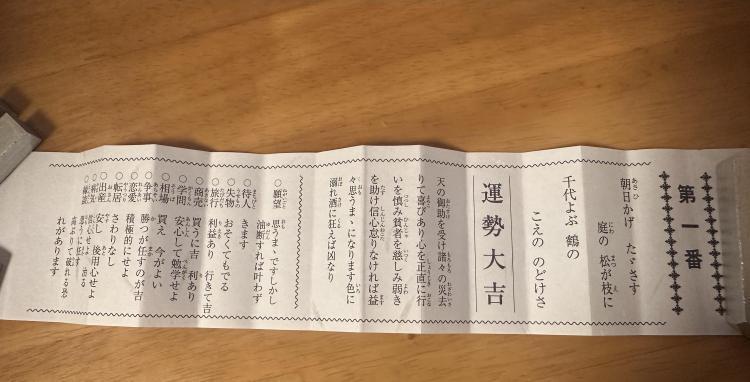 第一番
朝日かげ たゞさす
庭の 松が枝に
千代よぶ 鶴の
こえの のどけさ
運勢大吉
天の御助を受け諸々の災去
りて喜びあり心を正直に行
いを慎み貧者を慈しみ弱き
を助け信心怠りなければ益
々思うまゝになります色に
溺れ酒に狂えば凶なり
○願望 思うまゝですしかし
油断すれば叶わず
○待人 きます
○失物 おそくてもでる
○旅行 利益あり 行きて吉
○商売 買うに吉 利あり
○学問 安心して勉学せよ
○相場 買え 今がよい
○争事 勝つが任すのが吉
○恋愛 積極的にせよ
○転居 さわりなし
○出産 安し 後用心せよ
治る
高ぶりて破れる恐
れがあります